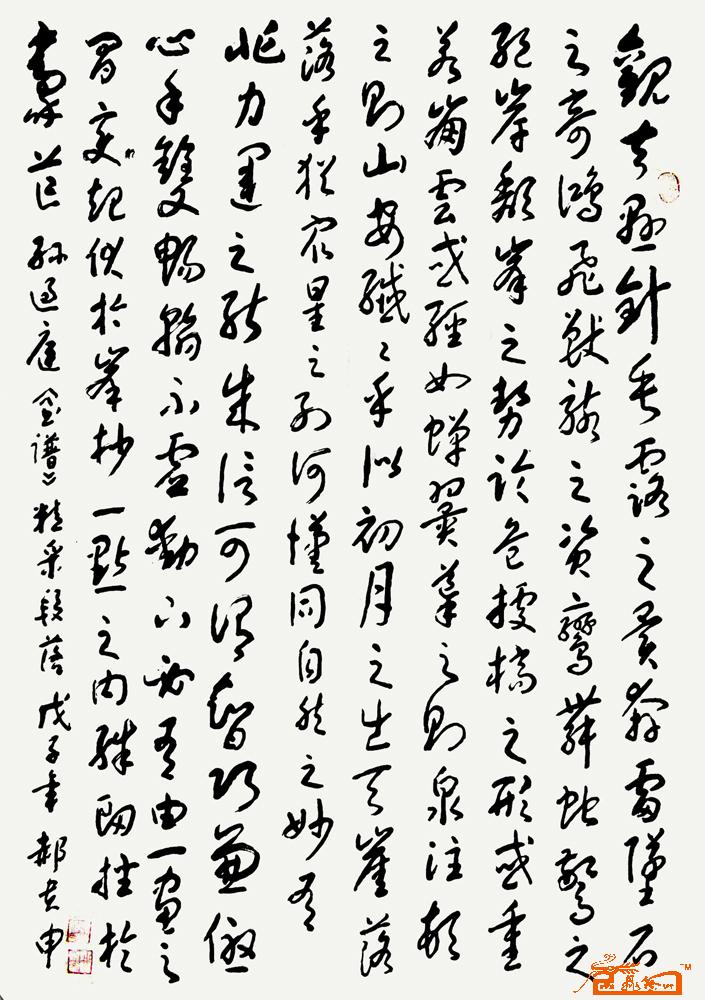 觀夫懸針垂露之異奔雷墜石
之奇鴻飛獸駭之資鸞舞蛇驚之
絕岸頹峯之勢臨危據槁之形或重
若崩雲或輕如蟬翼導之則泉注頓
之則山安纖纖乎似初月之出天崖落
落乎猶眾星之列河漢同自然之妙有
非力運之能成信可謂智巧兼優
心手雙暢翰不虛動下必有由一畫之
間變起伏於峯杪一點之內殊衄挫於
毫芒 孫過庭書譜精采段落 戊子年 郝申